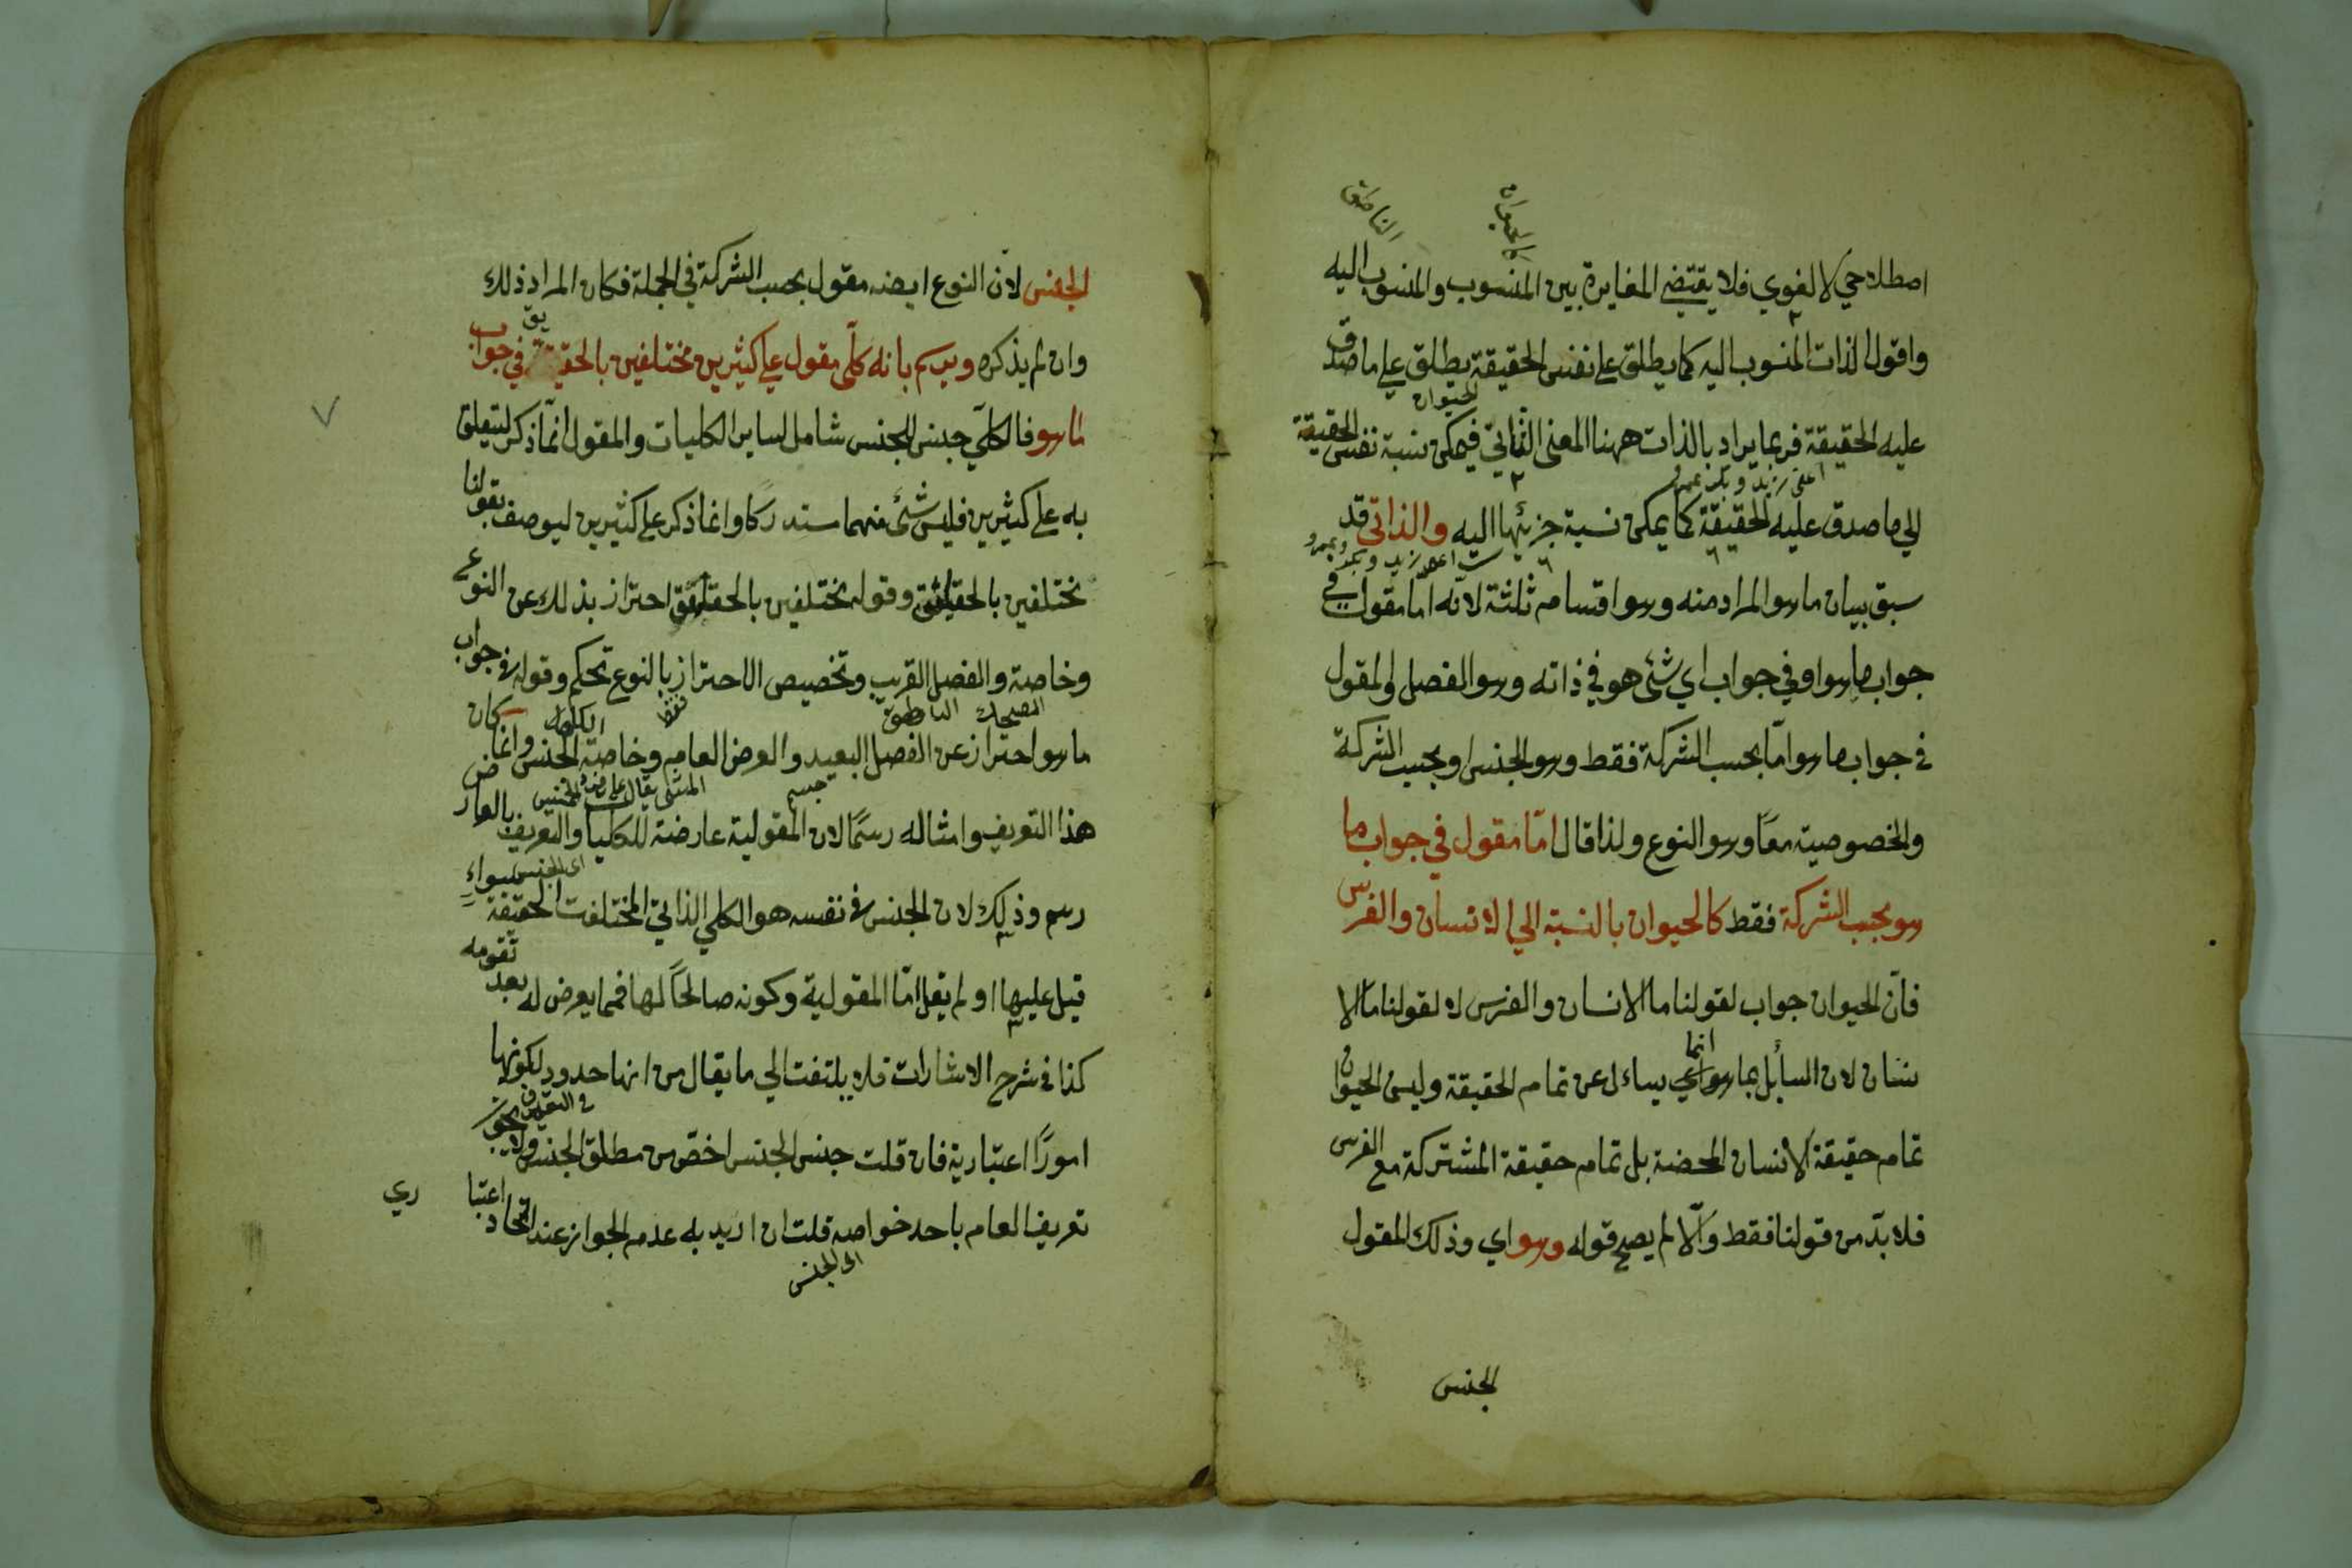 الناطق
اصطلاحي لا لغوي فلا يقتضي المغايرة بين المنسوب والمنسوب اليه
واقول الذات المنسوب اليه كما يطلق على نفس الحقيقة يطلق على ما صدق
الحيوان
عليه الحقيقة فربما يراد بالذات ههنا المعنى الثاني فيمكن نسبة نفس الحقيقة
اعني زيد وبكر عمرو
الي ما صدق عليه الحقيقة كما يمكن نسبة جزئها اليه والذاتي قد
اعني زيد وبكر وعمرو
سبق بيان ما هو المراد منه وهو اقسام ثلثة لانه اما مقول في
جواب ما هو او في جواب اي شئ هو في ذاته وهو الفصل والمقول
في جواب ما هو امّا بحسب الشركة فقط وهو الجنس او بحسب الشركة
والخصوصية معًا وهو النوع ولذا قال امّا مقول في جواب ما
هو بحسب الشركة فقط كالحيوان بالنسبة الي الانسان والفرس
فانّ الحيوان جواب لقولنا ما الانسان والفرس لا لقولنا ما الا
انما
نسان لان السائل بما هو اي يسال عن تمام الحقيقة وليس الحيوان
تمام حقيقة الانسان المحضة بل تمام حقيقة المشتركة مع الفرس
فلا بدّ من قولنا فقط والّا لم يصح قوله وهو اي وذلك المقول
الجنس
الجنس لانّ النوع ايضه مقول بحسب الشركة في الجملة فكان المراد ذلك
وان لم يذكره ويرسم بانه كلّي مقول علي كثيرين مختلفين بالحقيقة في جواب
ما هو فالكلّي جنس للجنس شامل لساير الكليات والمقول انمّا ذكر ليتعلق
به على كثيرين فليس شئ منهما مستدركا وانما ذكر على كثيرين ليوصف بقولنا
مختلفين بالحقايق وقوله مختلفين بالحقايق احتراز بذلك عن النوع
وخاصته والفصل القريب وتخصيص الاحتراز بالنوع تحكم وقوله في جواب
الناطق فقط
ما هو احتراز عن الفصل البعيد والعرض العام وخاصة الجنس وانما كان
جسم
هذا التعريف وامثاله رسمًا لان المقولية عارضة للكليا والتعريف بالعارض
اى الجنس
رسم وذلك لان الجنس في نفسه هو الكلي الذاتي المختلفت الحقيقة سواء
قيل عليها او لم يقل امّا المقولية وكونه صالحًا لها فمما يعرض له بعد تقومه
كذا في شرح الاشارات فلا يلتفت الي ما يقال من انها حدود لكونها
في التعريف
امورًا اعتبارية فان قلت جنس الجنس اخصّ من مطلق الجنس ولا يجوز
تعريف العام باحد خواصه قلت ان اريد به عدم الجواز عند اتحاد اعتبا
ري
اى الجنس